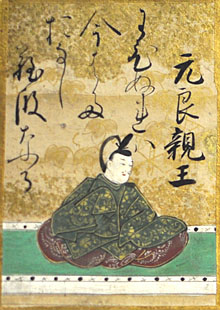 元良親王
わひぬれハ
今はた
おなし
難波なる